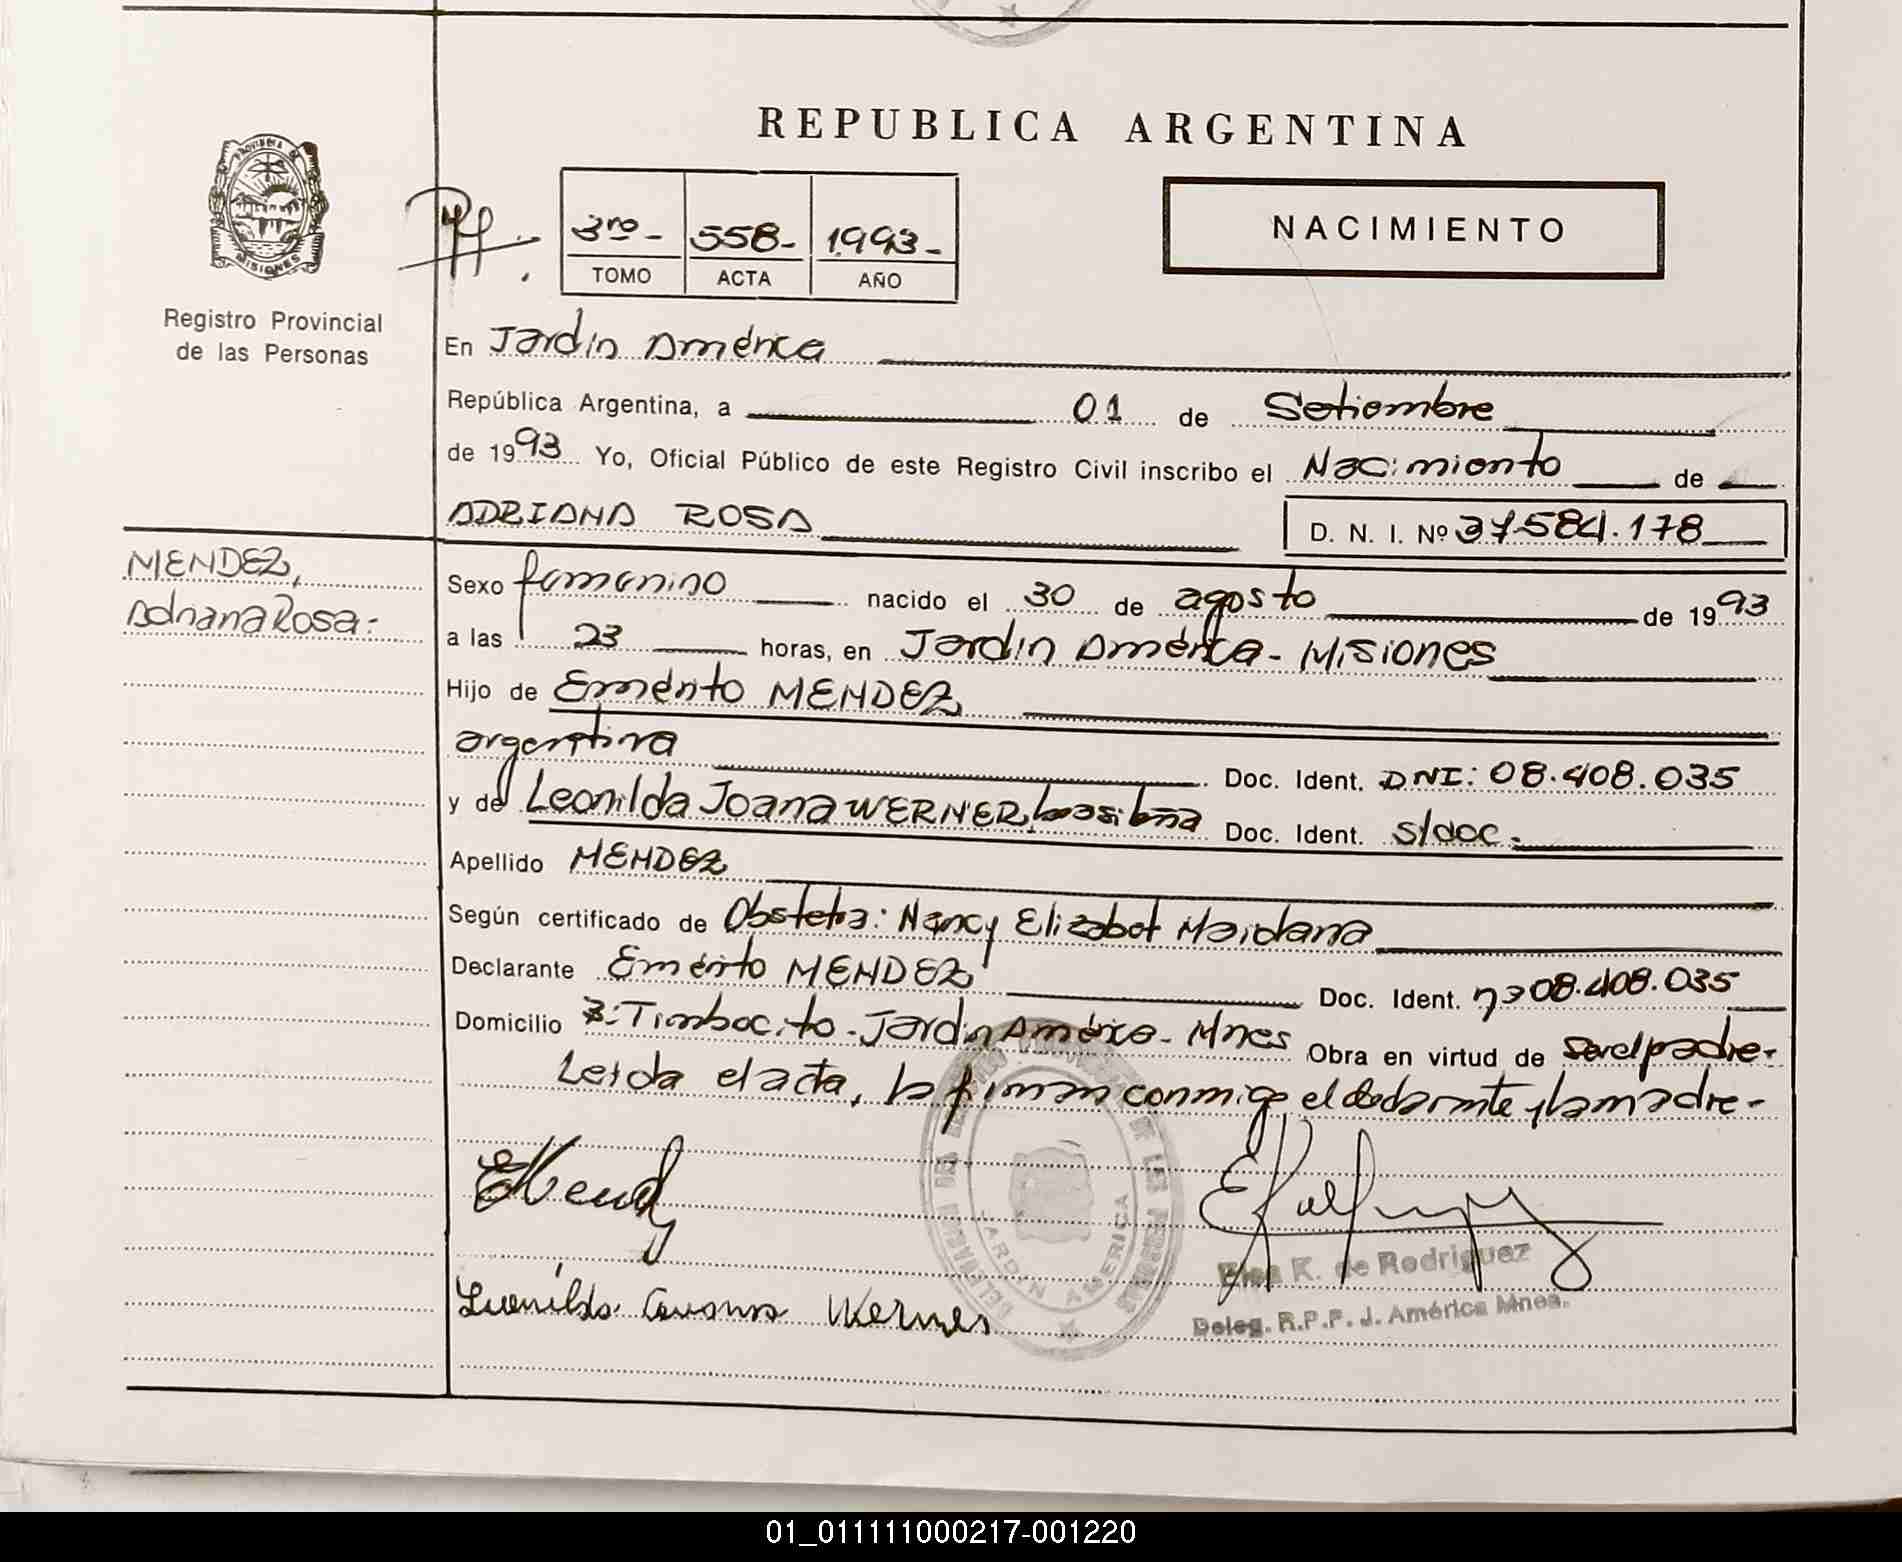 REPUBLICA ARGENTINA
PROVINCIA DE
MISIONES
Registro Provincial
de las Personas
3ro - 558 - 1993 -
TOMO ACTA AÑO
NACIMIENTO
En Jardin América
República Argentina, a 01 de Setiembre
de 1993 Yo, Oficial Público de este Registro Civil inscribo el Nacimiento de
ADRIANA ROSA D. N. I. Nº 37.584.178
MENDEZ,
Adriana Rosa:
Sexo femenino nacido el 30 de agosto de 1993
a las 23 horas, en Jardin América - Misiones
Hijo de Emérito MENDEZ
argentina Doc. Ident. DNI: 08.408.035
y de Leonilda Joana WERNER, brasileña Doc. Ident. s/doc.
Apellido MENDEZ
Según certificado de Obstetra: Nancy Elizabet Maidana
Declarante Emérito MENDEZ Doc. Ident. 08.408.035
Domicilio Timbocito - Jardin América - Mnes Obra en virtud de ser el padre.
Leida el acta, la firman conmigo el declarante y la madre.
JARDIN AMERICA
Leonilda Werner
Elsa K. de Rodriguez
Deleg. R.P.P. J. América Mnes.
01_011111000217-001220